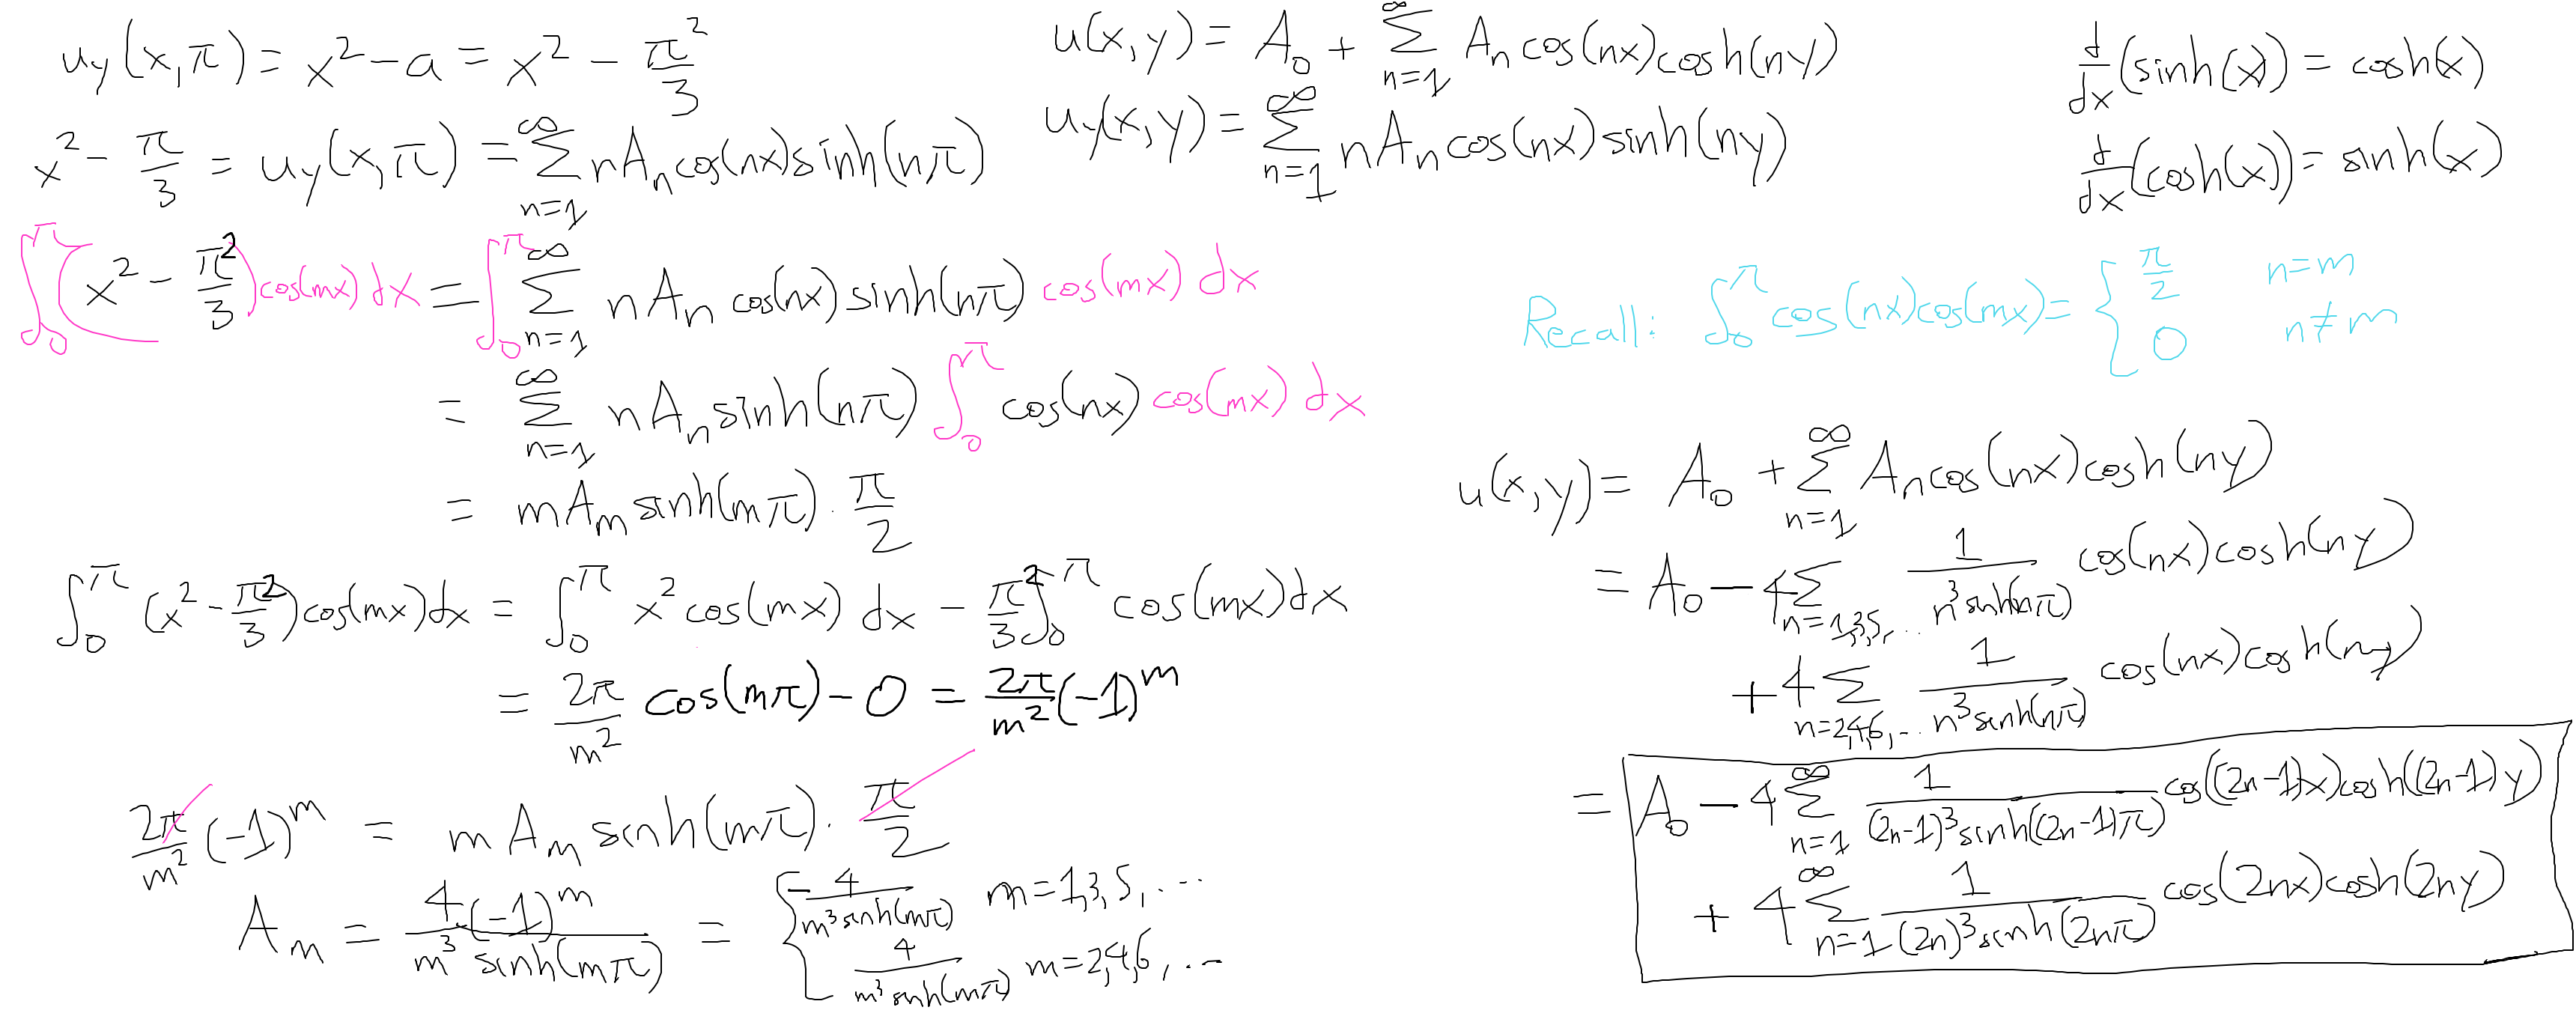 u_y(x,π) = x² − a = x² − π²/3
x² − π/3 = u_y(x,π) = ∑_{n=1}^{∞} nA_n cos(nx)sinh(nπ)
∫_0^π (x² − π²/3)cos(mx) dx = ∫_0^π ∑_{n=1}^{∞} nA_n cos(nx) sinh(nπ) cos(mx) dx
= ∑_{n=1}^{∞} nA_n sinh(nπ) ∫_0^π cos(nx) cos(mx) dx
= mA_m sinh(mπ) · π/2
∫_0^π (x² − π²/3)cos(mx)dx = ∫_0^π x² cos(mx) dx − π²/3 ∫_0^π cos(mx)dx
= 2π/m² cos(mπ) − 0 = 2π/m² (−1)^m
2π/m² (−1)^m = mA_m sinh(mπ) · π/2
A_m = 4·(−1)^m / (m³ sinh(mπ)) = { −4/(m³ sinh(mπ)) m=1,3,5,...
4/(m³ sinh(mπ)) m=2,4,6,...
u(x,y) = A_0 + ∑_{n=1}^{∞} A_n cos(nx)cosh(ny)
u_y(x,y) = ∑_{n=1}^{∞} nA_n cos(nx)sinh(ny)
d/dx (sinh(x)) = cosh(x)
d/dx (cosh(x)) = sinh(x)
Recall: ∫_0^π cos(nx)cos(mx) = { π/2 n=m
0 n≠m
u(x,y) = A_0 + ∑_{n=1}^{∞} A_n cos(nx)cosh(ny)
= A_0 − 4∑_{n=1,3,5,...} 1/(n³ sinh(nπ)) cos(nx)cosh(ny)
+ 4∑_{n=2,4,6,...} 1/(n³ sinh(nπ)) cos(nx)cosh(ny)
= A_0 − 4∑_{n=1}^{∞} 1/((2n−1)³ sinh((2n−1)π)) cos((2n−1)x)cosh((2n−1)y)
+ 4∑_{n=1}^{∞} 1/((2n)³ sinh(2nπ)) cos(2nx)cosh(2ny)